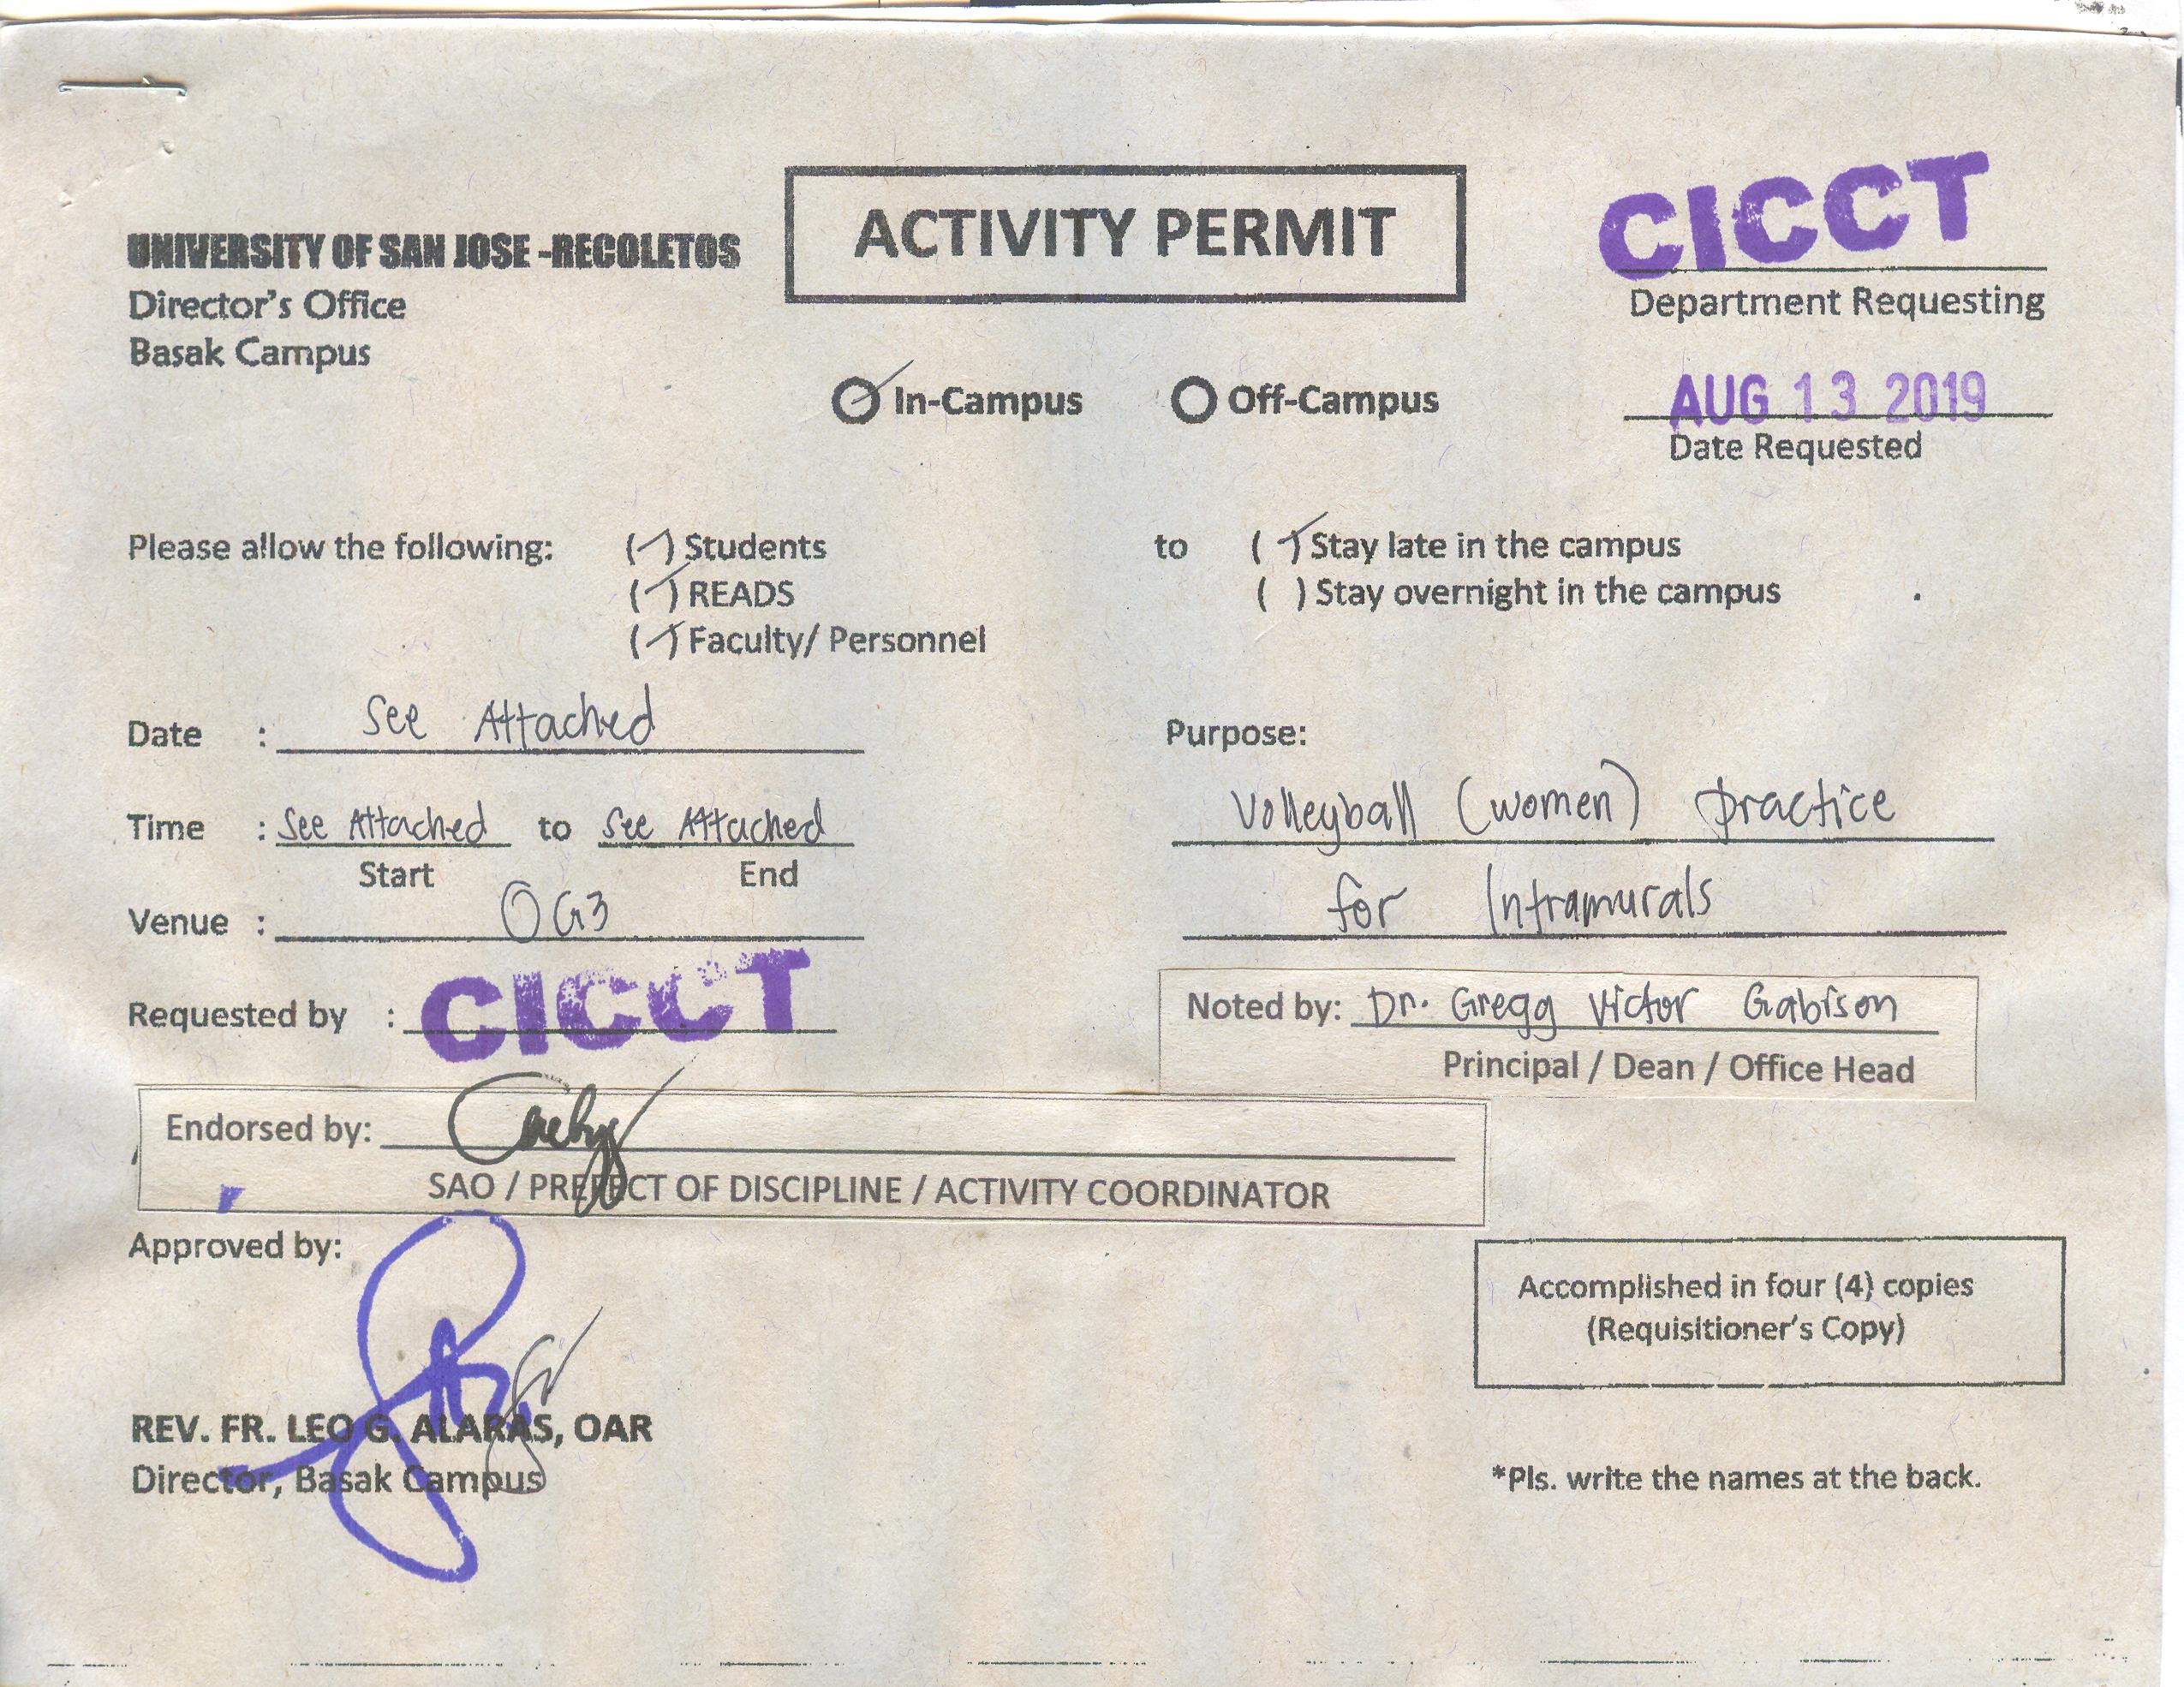 UNIVERSITY OF SAN JOSE -RECOLETOS
Director's Office
Basak Campus
ACTIVITY PERMIT
CICCT
Department Requesting
In-Campus Off-Campus
AUG 13 2019
Date Requested
Please allow the following: (✓) Students to (✓) Stay late in the campus
(✓) READS ( ) Stay overnight in the campus
(✓) Faculty/ Personnel
Date : See Attached
Time : See Attached to See Attached
Start End
Venue : OG3
Requested by : CICCT
Purpose:
Volleyball (women) practice
for Intramurals
Noted by: Dr. Gregg Victor Gabison
Principal / Dean / Office Head
Endorsed by:
SAO / PREFECT OF DISCIPLINE / ACTIVITY COORDINATOR
Approved by:
REV. FR. LEO G. ALARAS, OAR
Director, Basak Campus
Accomplished in four (4) copies
(Requisitioner's Copy)
*Pls. write the names at the back.